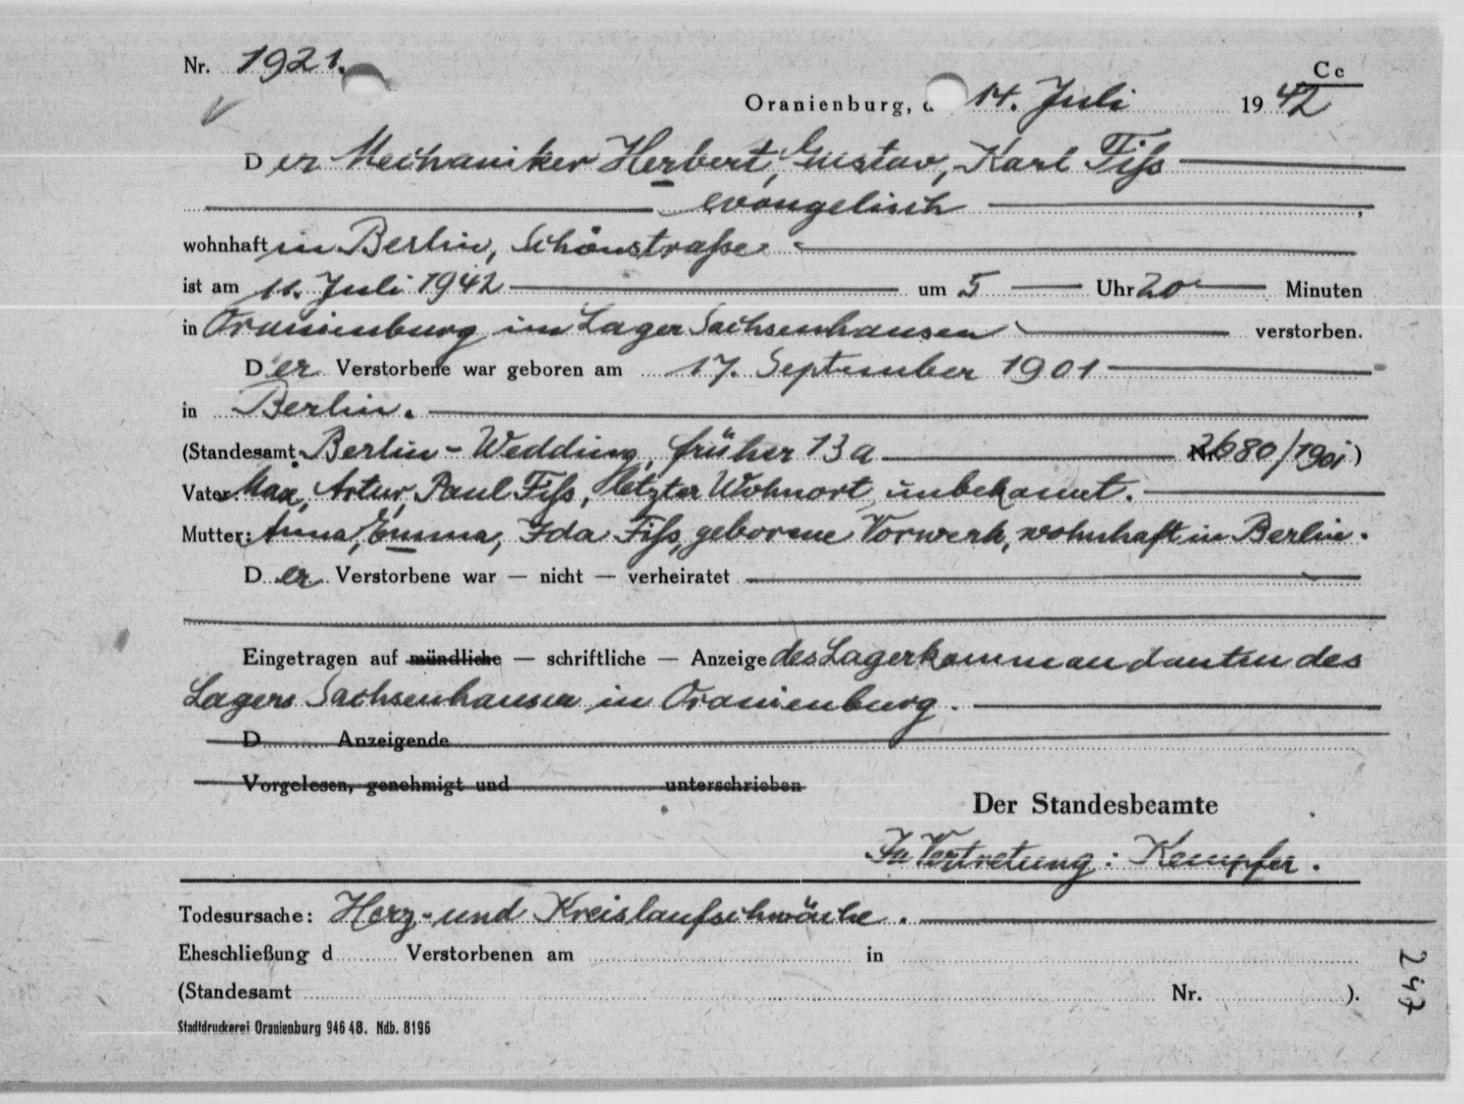 Nr. 1921.
Cc
Oranienburg, d 14. Juli 1942
Der Mechaniker Herbert, Gustav, Karl Fiß
evangelisch,
wohnhaft in Berlin, Schönstraße
ist am 11. Juli 1942 um 5 Uhr 20 Minuten
in Oranienburg im Lager Sachsenhausen verstorben.
Der Verstorbene war geboren am 17. September 1901
in Berlin.
(Standesamt Berlin-Wedding, früher 13a Nr. 2680/1901)
Vater Max, Artur, Paul Fiß, letzter Wohnort unbekannt.
Mutter: Anna, Emma, Ida Fiß, geborene Vorwerk, wohnhaft in Berlin.
Der Verstorbene war — nicht — verheiratet
Eingetragen auf mündliche — schriftliche — Anzeige des Lagerkommandanten des
Lagers Sachsenhausen in Oranienburg.
D Anzeigende
Vorgelesen, genehmigt und unterschrieben
Der Standesbeamte
In Vertretung: Kempfer.
Todesursache: Herz- und Kreislaufschwäche.
Eheschließung d Verstorbenen am in
(Standesamt Nr. ).
Stadtdruckerei Oranienburg 946 48. Ndb. 8196
247